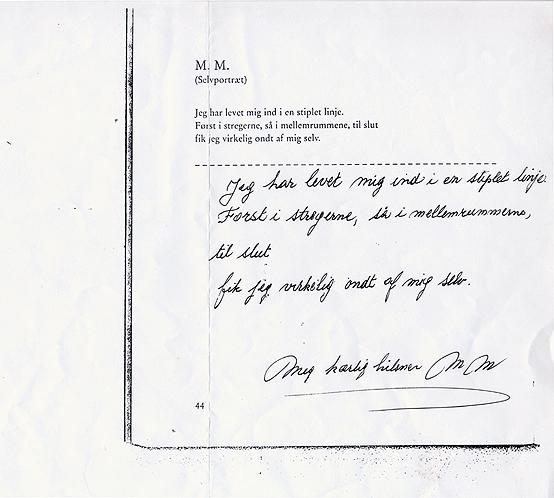 M. M.
(Selvportræt)
Jeg har levet mig ind i en stiplet linje.
Først i stregerne, så i mellemrummene, til slut
fik jeg virkelig ondt af mig selv.
Jeg har levet mig ind i en stiplet linje.
Først i stregerne, så i mellemrummene,
til slut
fik jeg virkelig ondt af mig selv.
Meg kærlig hilsner M M
44